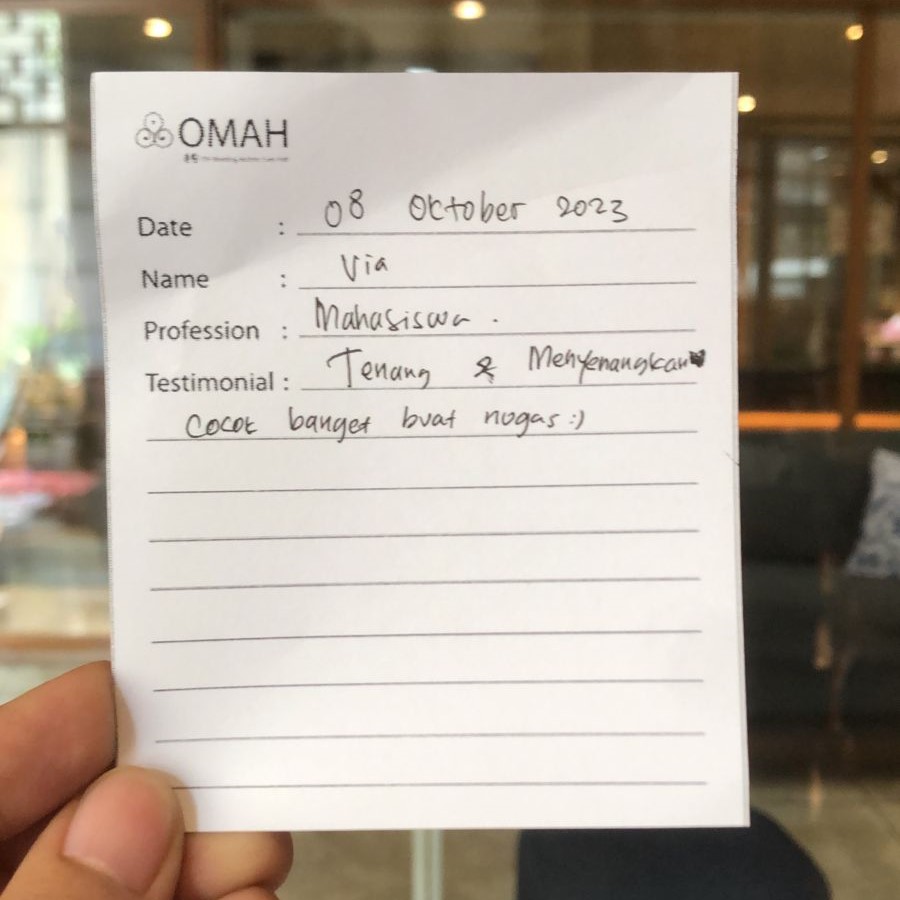 OMAH
Date : 08 Oktober 2023
Name : Via
Profession : Mahasiswa.
Testimonial : Tenang & Menyenangkan
Cocok banget buat nugas :)